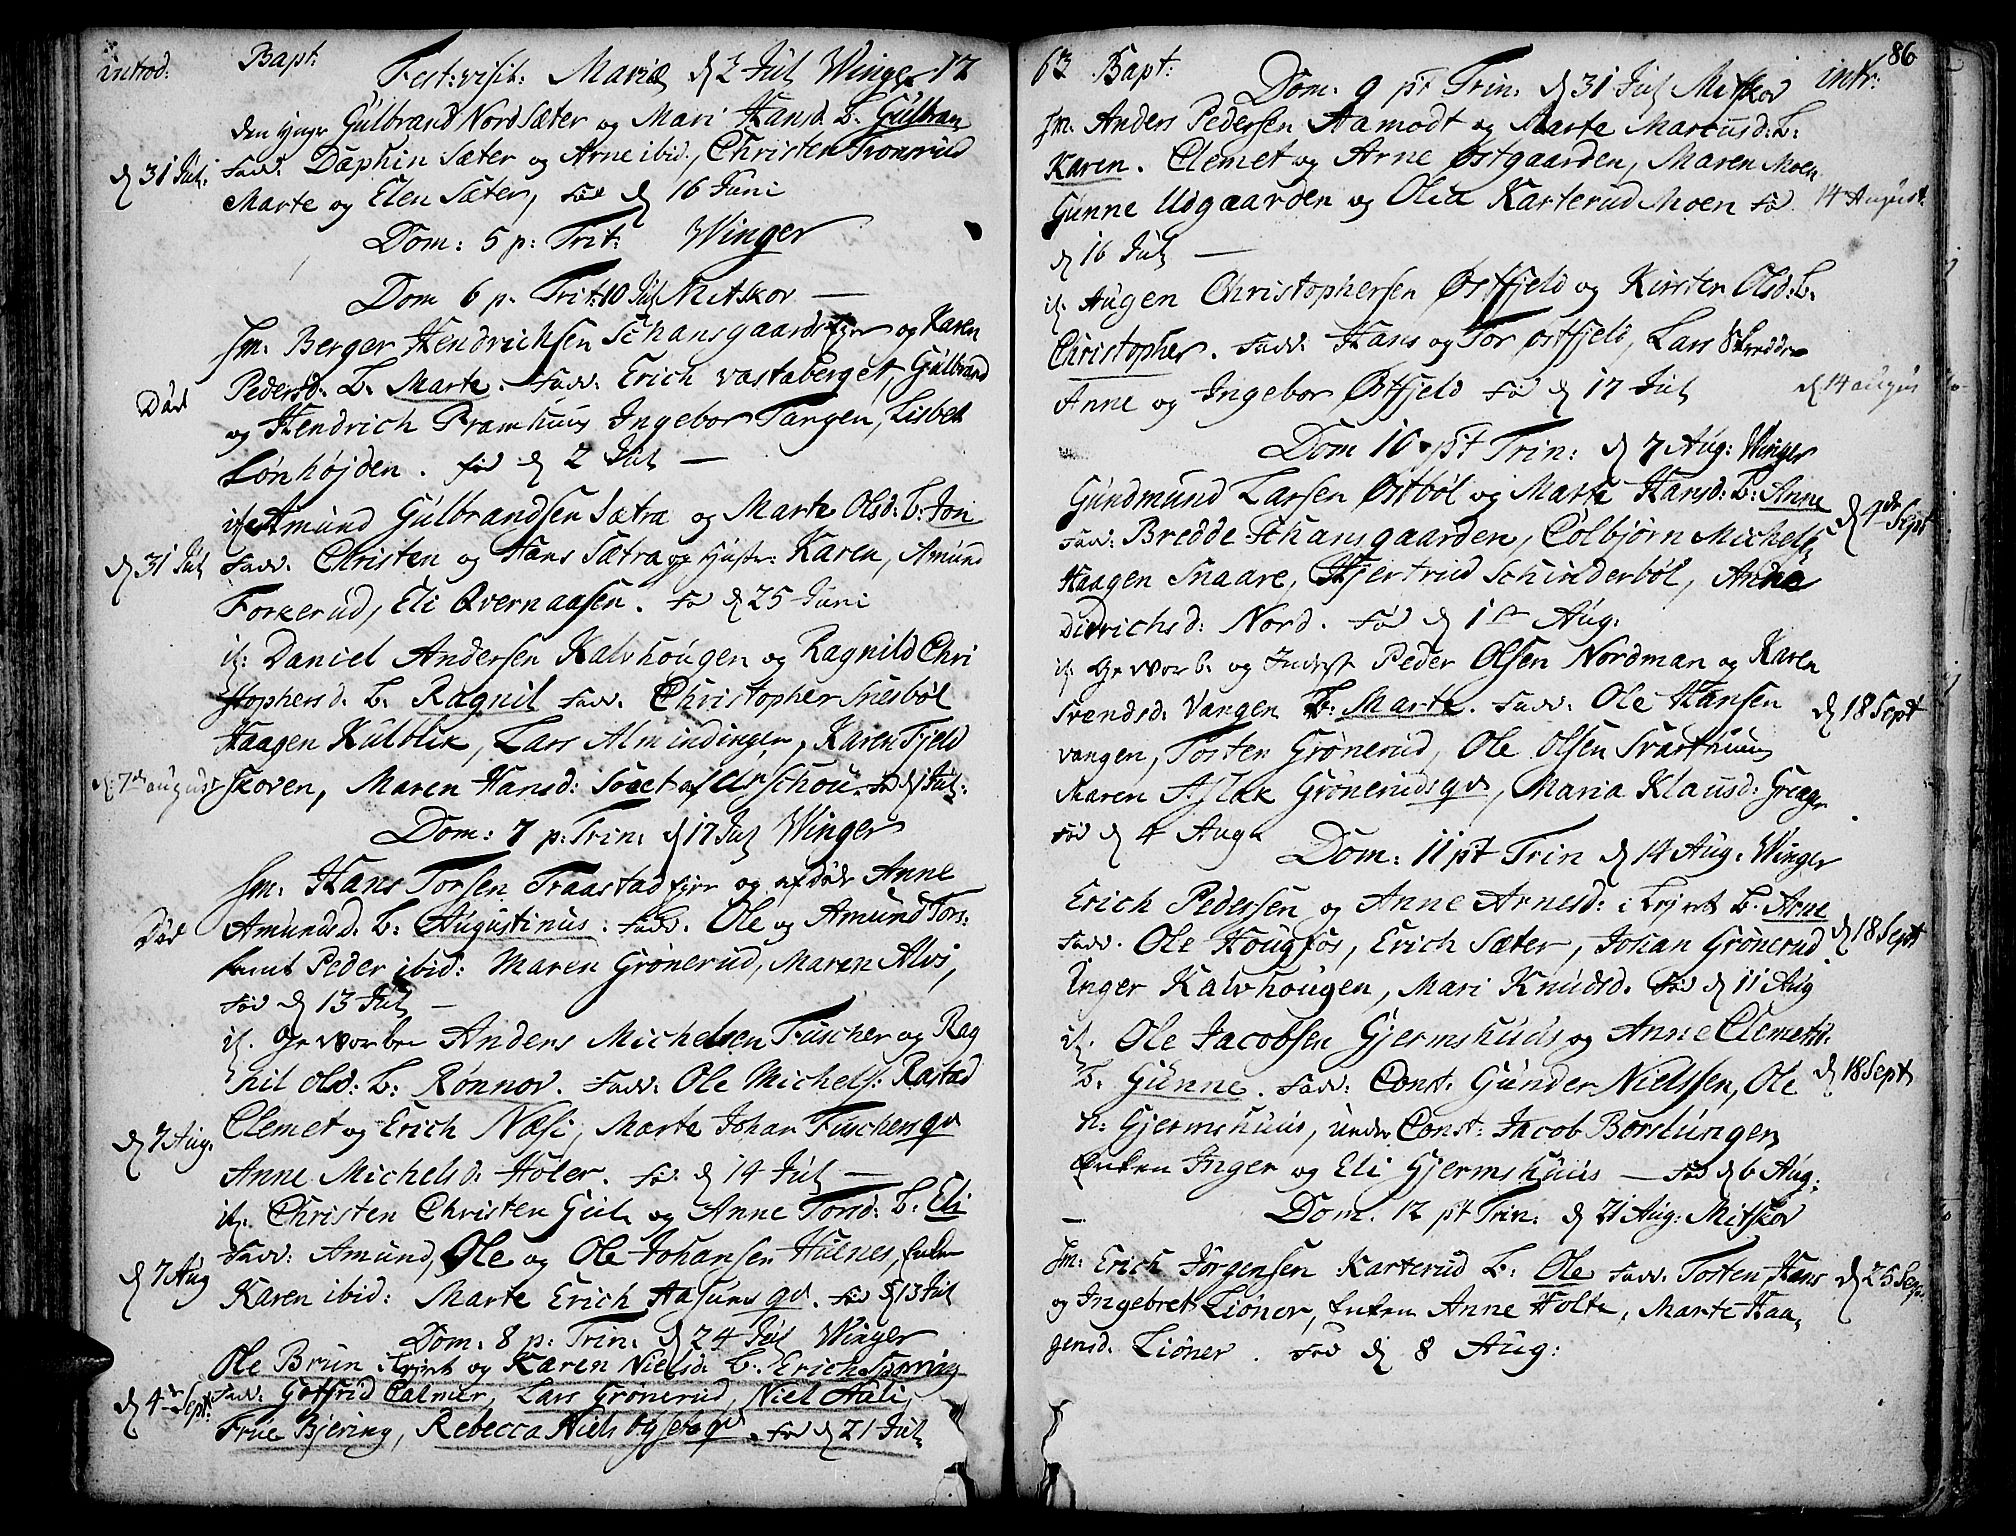 introd: Bapt:
Fest: visit: Mariæ d 2 Jul Winger 17
den ynge Gulbrand Nordsæter og Mari Hansd: B. Gulbran
d 31 Jul: Fadd. Daphin Sæter og Arne ibid, Christen Tronsrud
Marte og Elen Sæter, fød d 16 Juni
Dom: 5 p: Trit: Winger
Dom 6 p. Trit: 10 Jul Mitskov —
sm: Berger Hendrichsen Schansgaards ejer og Karen
Død Pedersd: B. Marte. Fadd. Erich Vastaberget, Gulbrand
og Hendrich Pramhuus Ingebor Tangen, Lisbet
Lønhøjden. fød d 2 Jul —
it. Amund Gulbrandsen Sætra og Marte Olsd: B: Jon
d 31 Jul Fadd. Christen og Hans Sætra og Hustr: Karen, Amund
Forkerud, Eli Qvernaasen. fød d 25 Juni
it: Daniel Andersen Kalvhougen og Ragnild Chri
stophersd. B. Ragnil Fadd. Christopher Snesbøl
Haagen Kulblik, Lars Almindingen, Karen Fjeld
d: 7de august skoven, Maren Hansd: Soret af Ur Schou. fød d 1 Jul:
Dom: 7 p: Trin: d 17 Jul Winger
sm: Hans Torsen Traastad ejer og afdøde Anne
Død Amundsd. B: Augustinus. Fadd. Ole og Amund Tors:
samt Peder ibid: Maren Grønerud, Maren Alvi,
fød d 13 Jul —
it. Gevorben Anders Michelsen Fuscher og Rag
nil Olsd: B: Rønnov. Fadd: Ole Michels: Rastad
d 7 Aug. Clemet og Erich Næss, Marte Johan Fuschers qv
Anne Michelsd: Holer. fød d 14 Jul —
it: Christen Christensen og Anne Torsd: B. Eli
d 7 Aug Fadd: Amund, Ole og Ole Johansen Hulnes, Enken
Karen ibid: Marte Erich Aasums qv. fød d 13 Jul
Dom: 8 p: Trin: d 24 Jul Winger
Ole Brun og Karen Nielsd: B. Erich Spørring
d 4de Sept: Fadd: Gotfrid Calmer, Lars Grønerud, Niel Huli,
Frue Bjering, Rebecca Niels Bysets qv. fød d 21 Jul
63 Bapt: intr: 86
Dom. 9 pt Trin: d 31 Jul Mitskov
sm. Anders Pedersen Aamodt og Marte Marcusd: B:
Karen. Clemet og Arne Østgaarden, Maren Moen
Gunne Udgaarden og Olia Karterud Moen fød 14 August
d 16 Jul —
it. Augen Christophersen Østfjeld og Kirsten Olsd: B.
Christopher. Fadd. Hans og Tor Østfjeld, Lars Skredder
Anne og Ingebor Østfjeld fød d 17 Jul d 14 augus
Dom 10 pt Trin: d 7 Aug: Winger
Gundmund Larsen Østbøl og Marte Hansd: B: Anne
Fadd: Bredde Schansgaarden, Colbjørn Michels d 4de Sept
Haagen Snaare, Gjertrud Schinderbøl, Anne
Didrichsd: Nord. fød d 1st Aug.
it. Gevorb. og Inderst Peder Olsen Nordman og Karen
Svendsd. Vangen B: Marte. Fadd: Ole Hansen d 18 Sept
Vangen, Tosten Grønerud, Ole Olsen Svarthuus
Maren Aslak Grøneruds qv, Maria Klausd: Greager
fød d 4 Aug
Dom: 11 pt Trin d 14 Aug: Winger
Erich Pedersen og Anne Arnesd: i Lejret B. Arne
Fadd. Ole Hougfos, Erich Sæter, Johan Grønerud d 18 Sept
Inger Kalvhougen, Mari Knudsd. fød d 11 Aug
it. Ole Jacobsen Gjermshuds og Anne Clemetsd.
B. Gunne. Fadd: Const: Gunder Nielssen, Ole d 18 Sept
n: Gjermshuus, under Const: Jacob Børslungen
Enken Inger og Eli Gjermshuus — fød d 6 Aug:
— Dom. 12 pt Trin: d 21 Aug: Mitskov
sm: Erich Jørgensen Karterud B: Ole Fadd: Tosten Hans d 25 Sept
og Ingebret Liøner, Enken Anne Holte, Marte Haa,
gensd. Liøner. fød d 8 Aug: